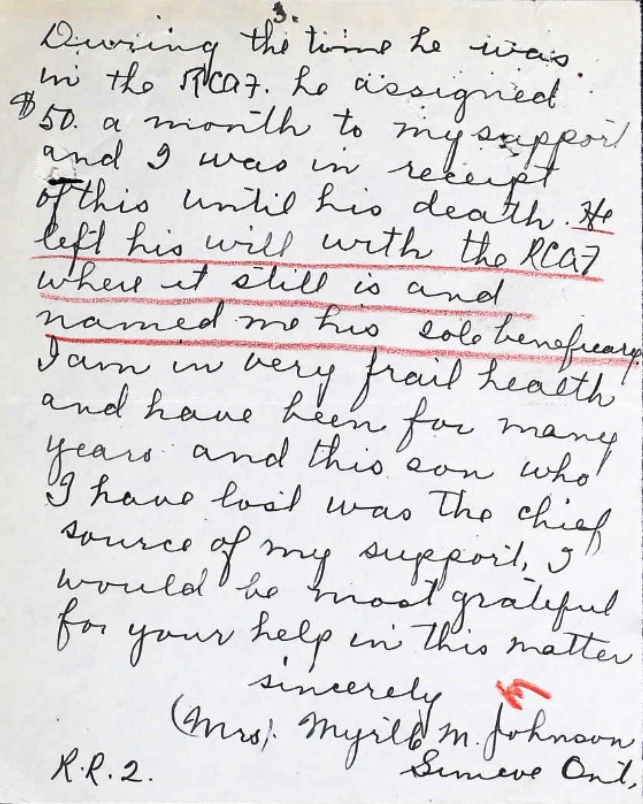 3.
During the time he was
in the RCAF. he assigned
$50. a month to my support
and I was in receipt
of this until his death. He
left his will with the RCAF
where it still is and
named me his sole beneficiary
I am in very frail health
and have been for many
years and this son who
I have lost was the chief
source of my support, I
would be most grateful
for your help in this matter
sincerely
(Mrs). M. Johnson
R.R.2. Simcoe Ont.